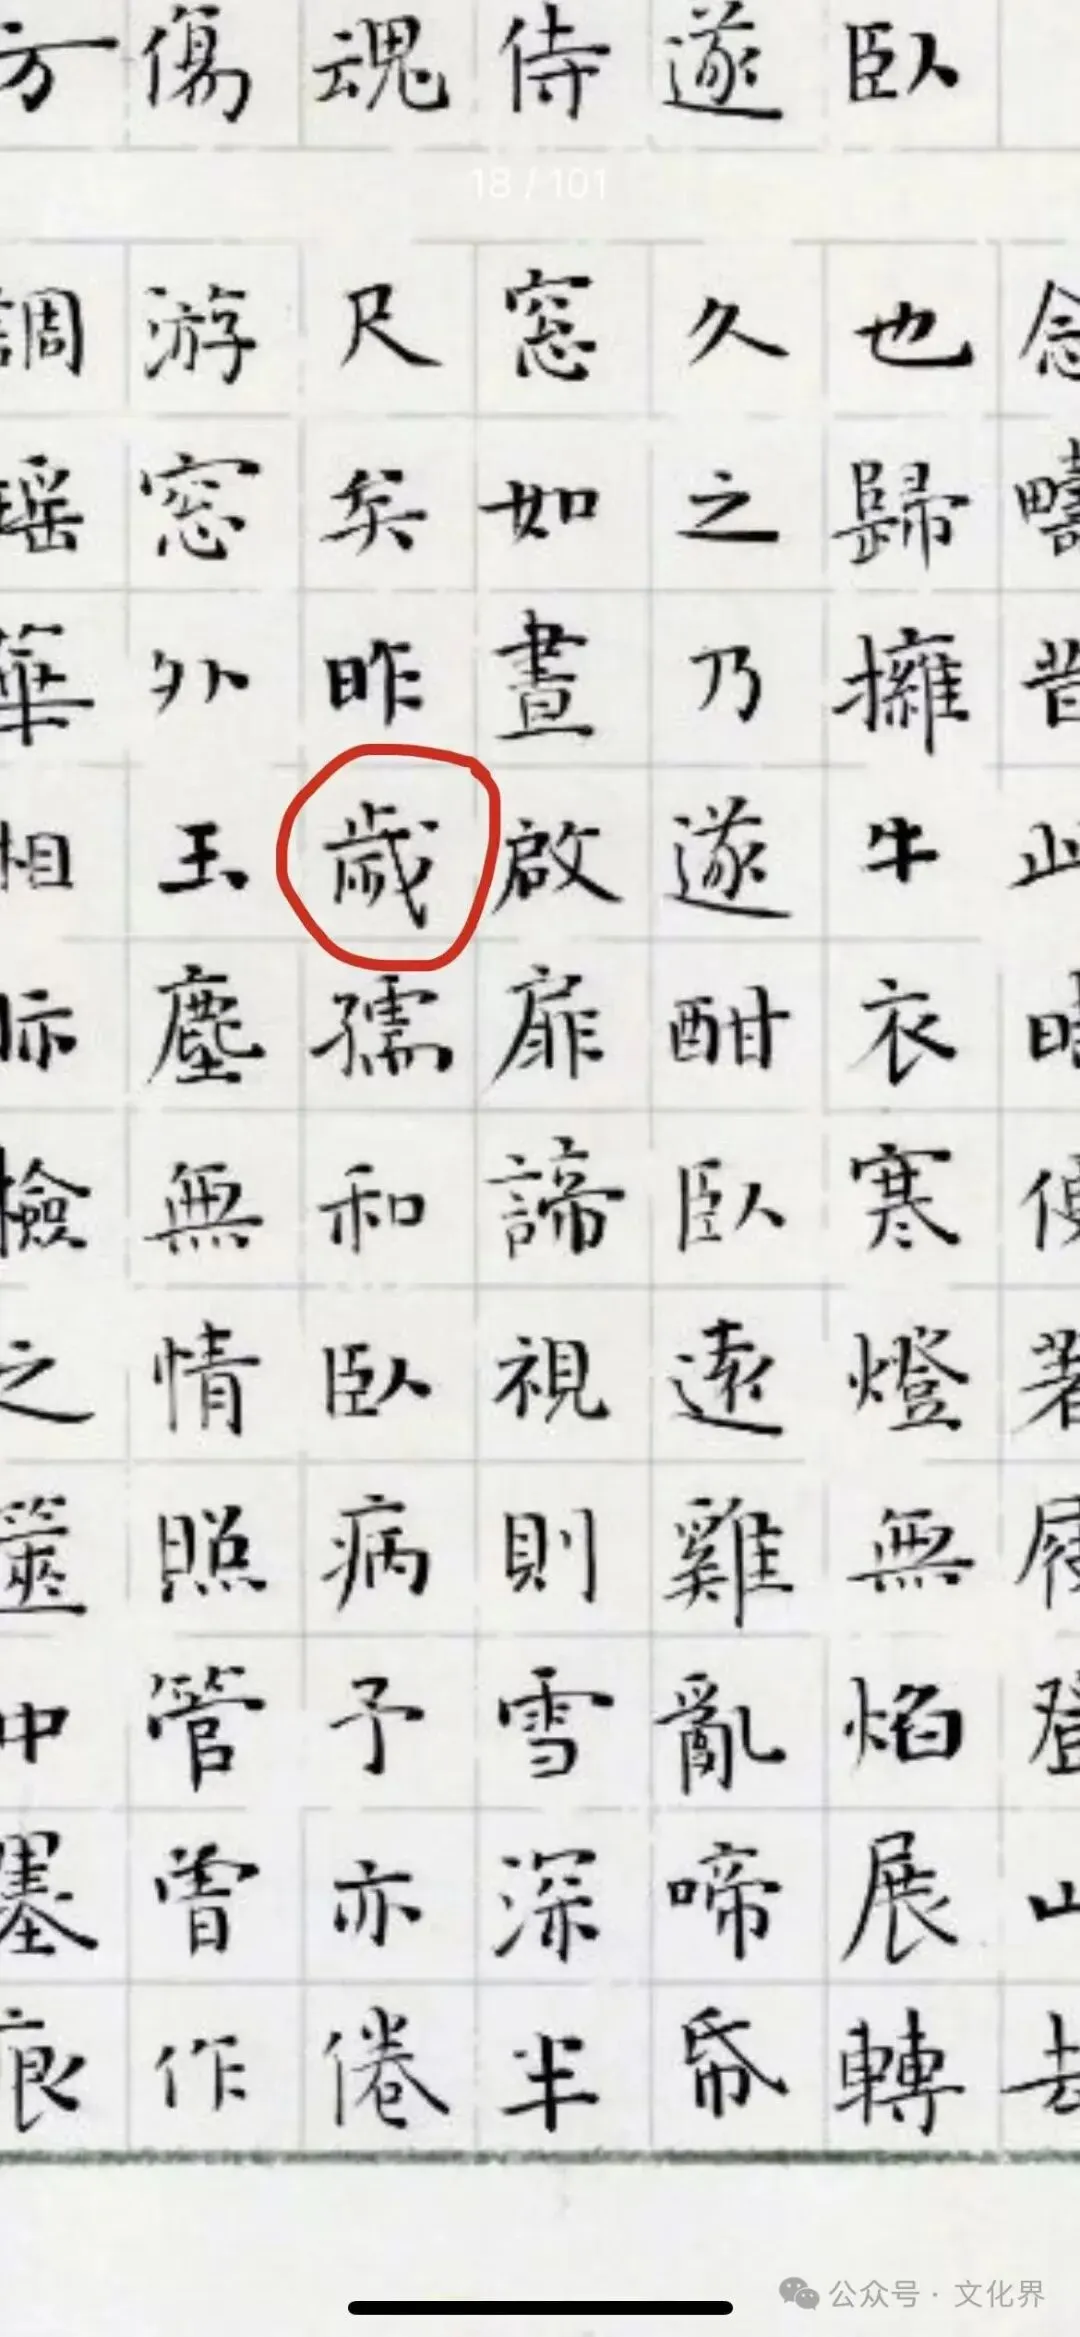 臥
遂
侍
魂
傷
方
18 / 101
念疇昔止時便著屐登山去
也歸擁牛衣寒燈無焰展轉
久之乃遂酣臥遠雞亂啼帋
窓如晝啟扉諦視則雪深半
尺矣昨歲孺和臥病予亦倦
游窓外玉塵無情照管曾作
調瑤華相眎檢之篋中墨痕
公众号 · 文化界